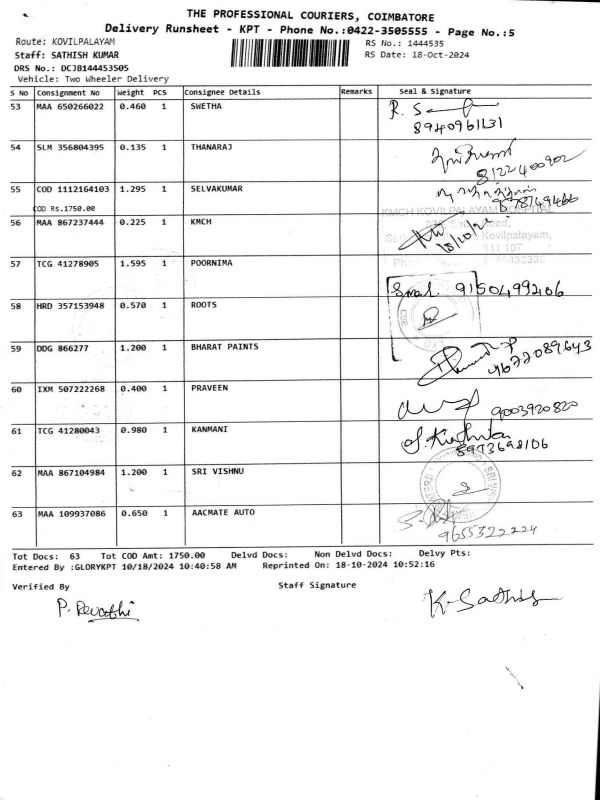 THE PROFESSIONAL COURIERS, COIMBATORE
Delivery Runsheet - KPT - Phone No.:0422-3505555 - Page No.:5
Route: KOVILPALAYAM RS No.: 1444535
Staff: SATHISH KUMAR RS Date: 18-Oct-2024
DRS No.: DCJB144453505
Vehicle: Two Wheeler Delivery
S No Consignment No Weight PCS Consignee Details Remarks Seal & Signature
53 MAA 650266022 0.460 1 SWETHA
54 SLM 356804395 0.135 1 THANARAJ
8122400902
55 COD 1112164103 1.295 1 SELVAKUMAR
COD Rs.1750.00
9878749466
KMCH KOVILPALAYAM HOSPITAL
56 MAA 867237444 0.225 1 KMCH
18/10/24
Kovilpalayam,
57 TCG 41278905 1.595 1 POORNIMA
58 HRD 357153948 0.570 1 ROOTS
59 DDG 866277 1.200 1 BHARAT PAINTS
60 IXM 507222268 0.400 1 PRAVEEN
9003920820
61 TCG 41280043 0.980 1 KANMANI
8973698106
62 MAA 867104984 1.200 1 SRI VISHNU
63 MAA 109937086 0.650 1 AACMATE AUTO
9655322224
Tot Docs: 63 Tot COD Amt: 1750.00 Delvd Docs: Non Delvd Docs: Delvy Pts:
Entered By :GLORYKPT 10/18/2024 10:40:58 AM Reprinted On: 18-10-2024 10:52:16
Verified By Staff Signature
P. Revathi K. Sathis